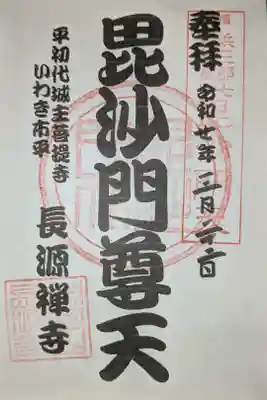 奉拝
令和七年二月二十二日
毘沙門尊天
平初代城主菩提寺
いわき市平
長源禅寺